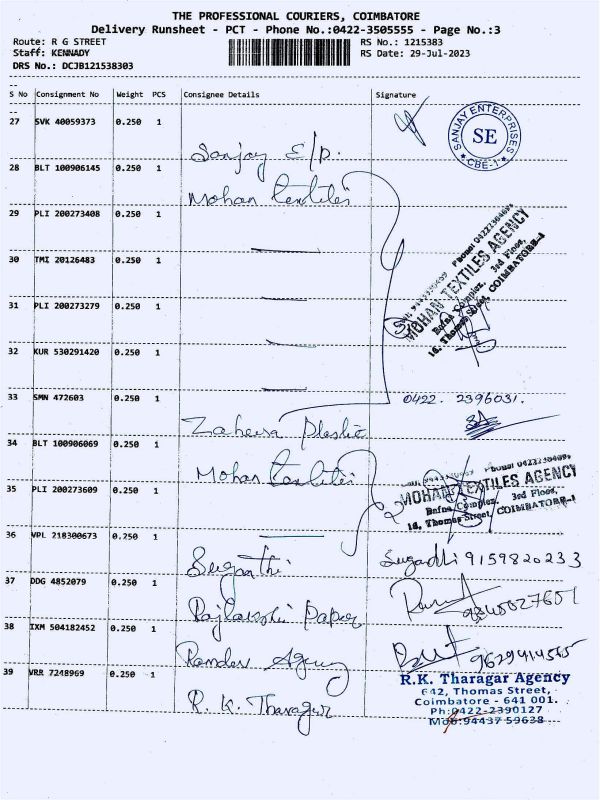 THE PROFESSIONAL COURIERS, COIMBATORE
Delivery Runsheet - PCT - Phone No.:0422-3505555 - Page No.:3
Route: R G STREET
RS No.: 1215383
Staff: KENNADY
RS Date: 29-Jul-2023
DRS No.: DCJB121538303
S No Consignment No Weight PCS Consignee Details Signature
27 SVK 40059373 0.250 1
Sanjay E/P.
SANJAY ENTERPRISES
SE
CBE-1
28 BLT 100906145 0.250 1
Mohan Textiles
29 PLI 200273408 0.250 1
30 TMI 20126483 0.250 1
MOHAN TEXTILES AGENCY
Bafna Complex, 3rd Floor,
16, Thomas Street, COIMBATORE-1
31 PLI 200273279 0.250 1
32 KUR 530291420 0.250 1
33 SMN 472603 0.250 1
0422. 2396031.
Zaheera Plastic
34 BLT 100906069 0.250 1
Mohan Textiles
MOHAN TEXTILES AGENCY
Bafna Complex, 3rd Floor,
16, Thomas Street, COIMBATORE-1
35 PLI 200273609 0.250 1
36 VPL 218300673 0.250 1
Suganthi
9159820233
37 DDG 4852079 0.250 1
Rajlakshmi Paper
38 IXM 504182452 0.250 1
Ramdev Agency
9629414565
39 VRR 7248969 0.250 1
R. K. Tharagar
R.K. Tharagar Agency
642, Thomas Street,
Coimbatore - 641 001.
Ph:0422-2390127
Mob:94437 59638